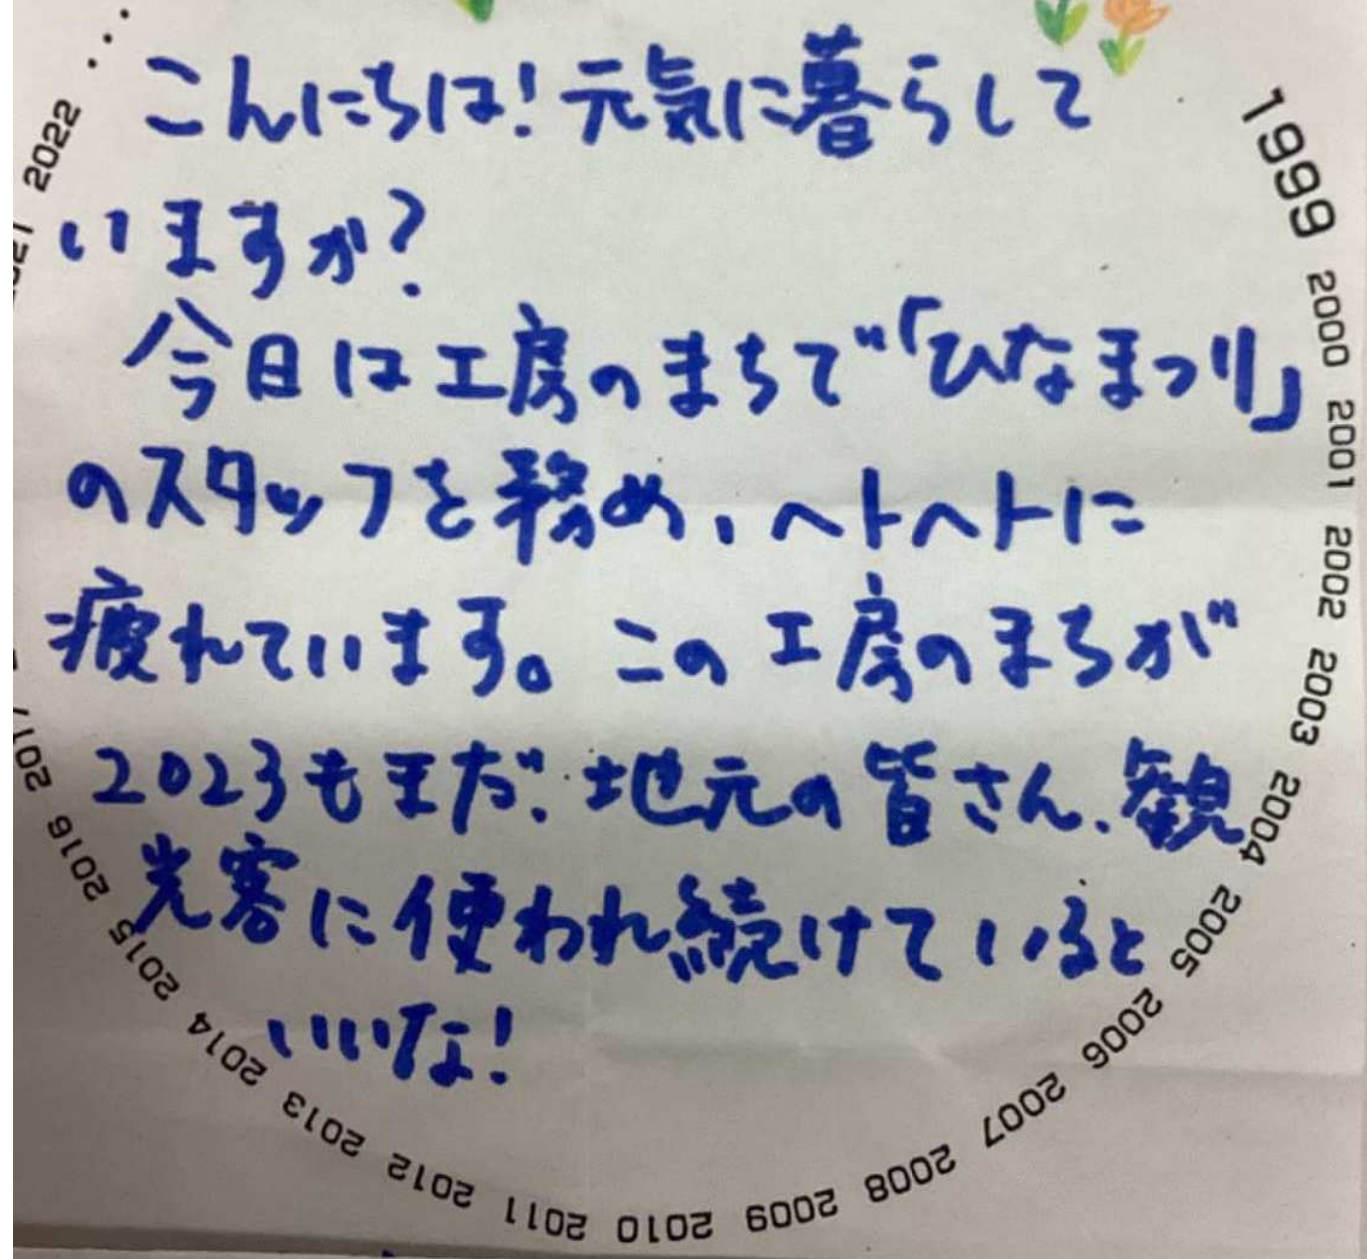 こんにちは!元気に暮らして
いますか?
今日は工房のまちで「ひなまつり」
のスタッフを務め、ヘトヘトに
疲れています。この工房のまちが
2023もまだ、地元の皆さん、観
光客に使われ続けていると
いいな!
1999 2000 2001 2002 2003 2004 2005 2006 2007 2008 2009 2010 2011 2012 2013 2014 2015 2016 2017
2022 ...